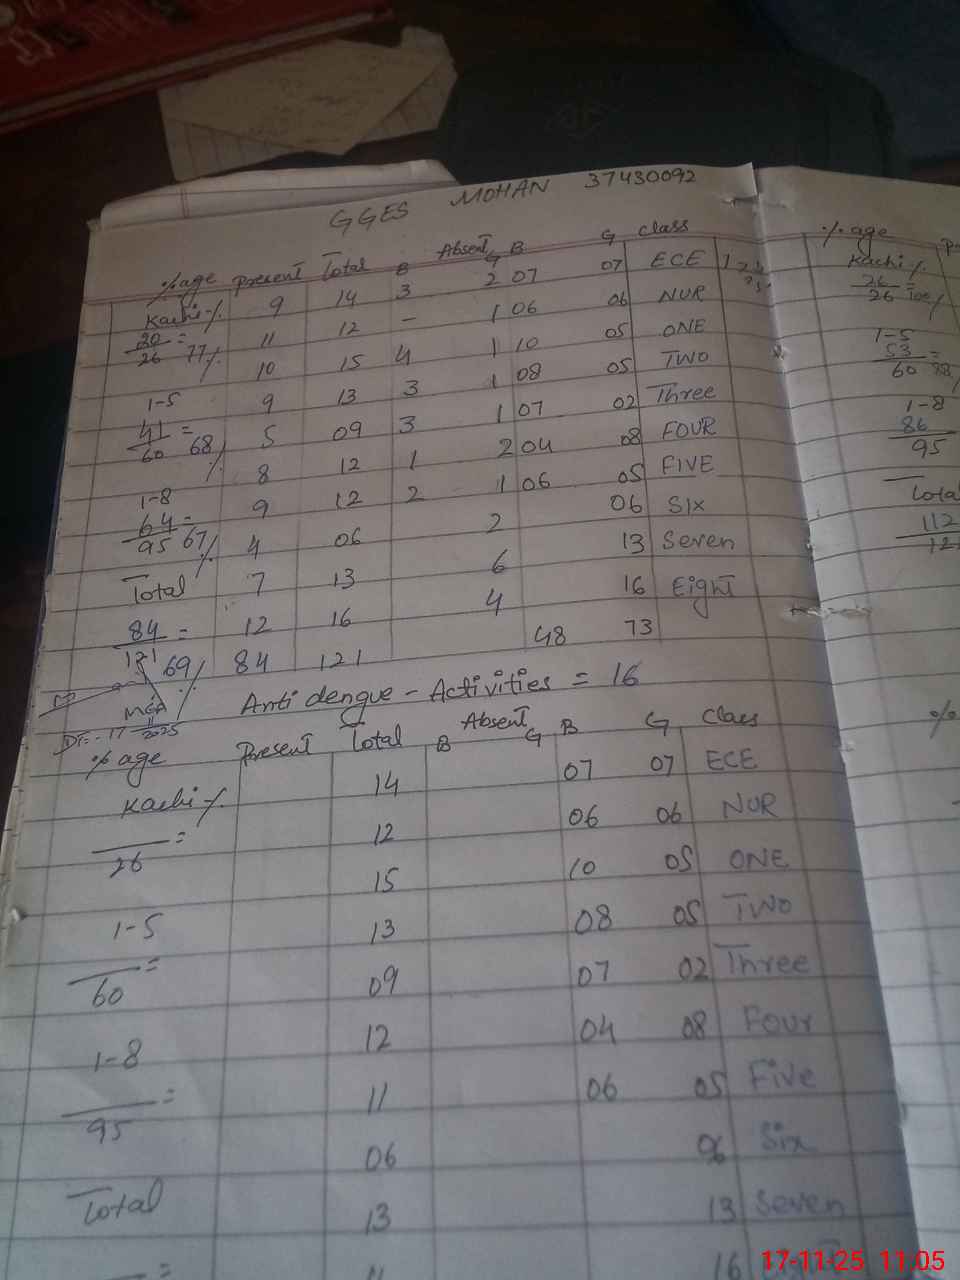 GGES MOHAN 37430092
%age Present Total B Absent G B G class
Kachi % 9 14 3 2 07 07 ECE
20/26 = 77% 11 12 - 1 06 06 NUR
10 15 4 1 10 05 ONE
1-5 9 13 3 1 08 05 TWO
41/60 = 68% 5 09 3 1 07 02 Three
8 12 1 2 04 08 FOUR
1-8 9 12 2 1 06 05 FIVE
64/95 = 67% 4 06 2 06 SIX
Total 7 13 6 13 Seven
84/121 = 69% 12 16 4 16 Eight
84 121 48 73
Anti dengue - Activities = 16
Dt:- 17 11 2025
%age Present Total B Absent G B G Class
Kachi % 14 07 07 ECE
/26 = 12 06 06 NUR
15 10 05 ONE
1-5 13 08 05 TWO
/60 = 09 07 02 Three
1-8 12 04 08 Four
/95 = 11 06 05 Five
06 06 Six
Total 13 13 Seven
= 16
% age
Kachi %
26/26 = 100%
1-5
53/60 =
1-8
86/95
Total
112
%
17-11-25 11:05